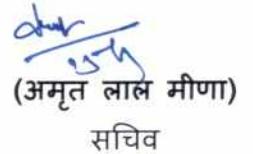 (अमृत लाल मीणा)
सचिव